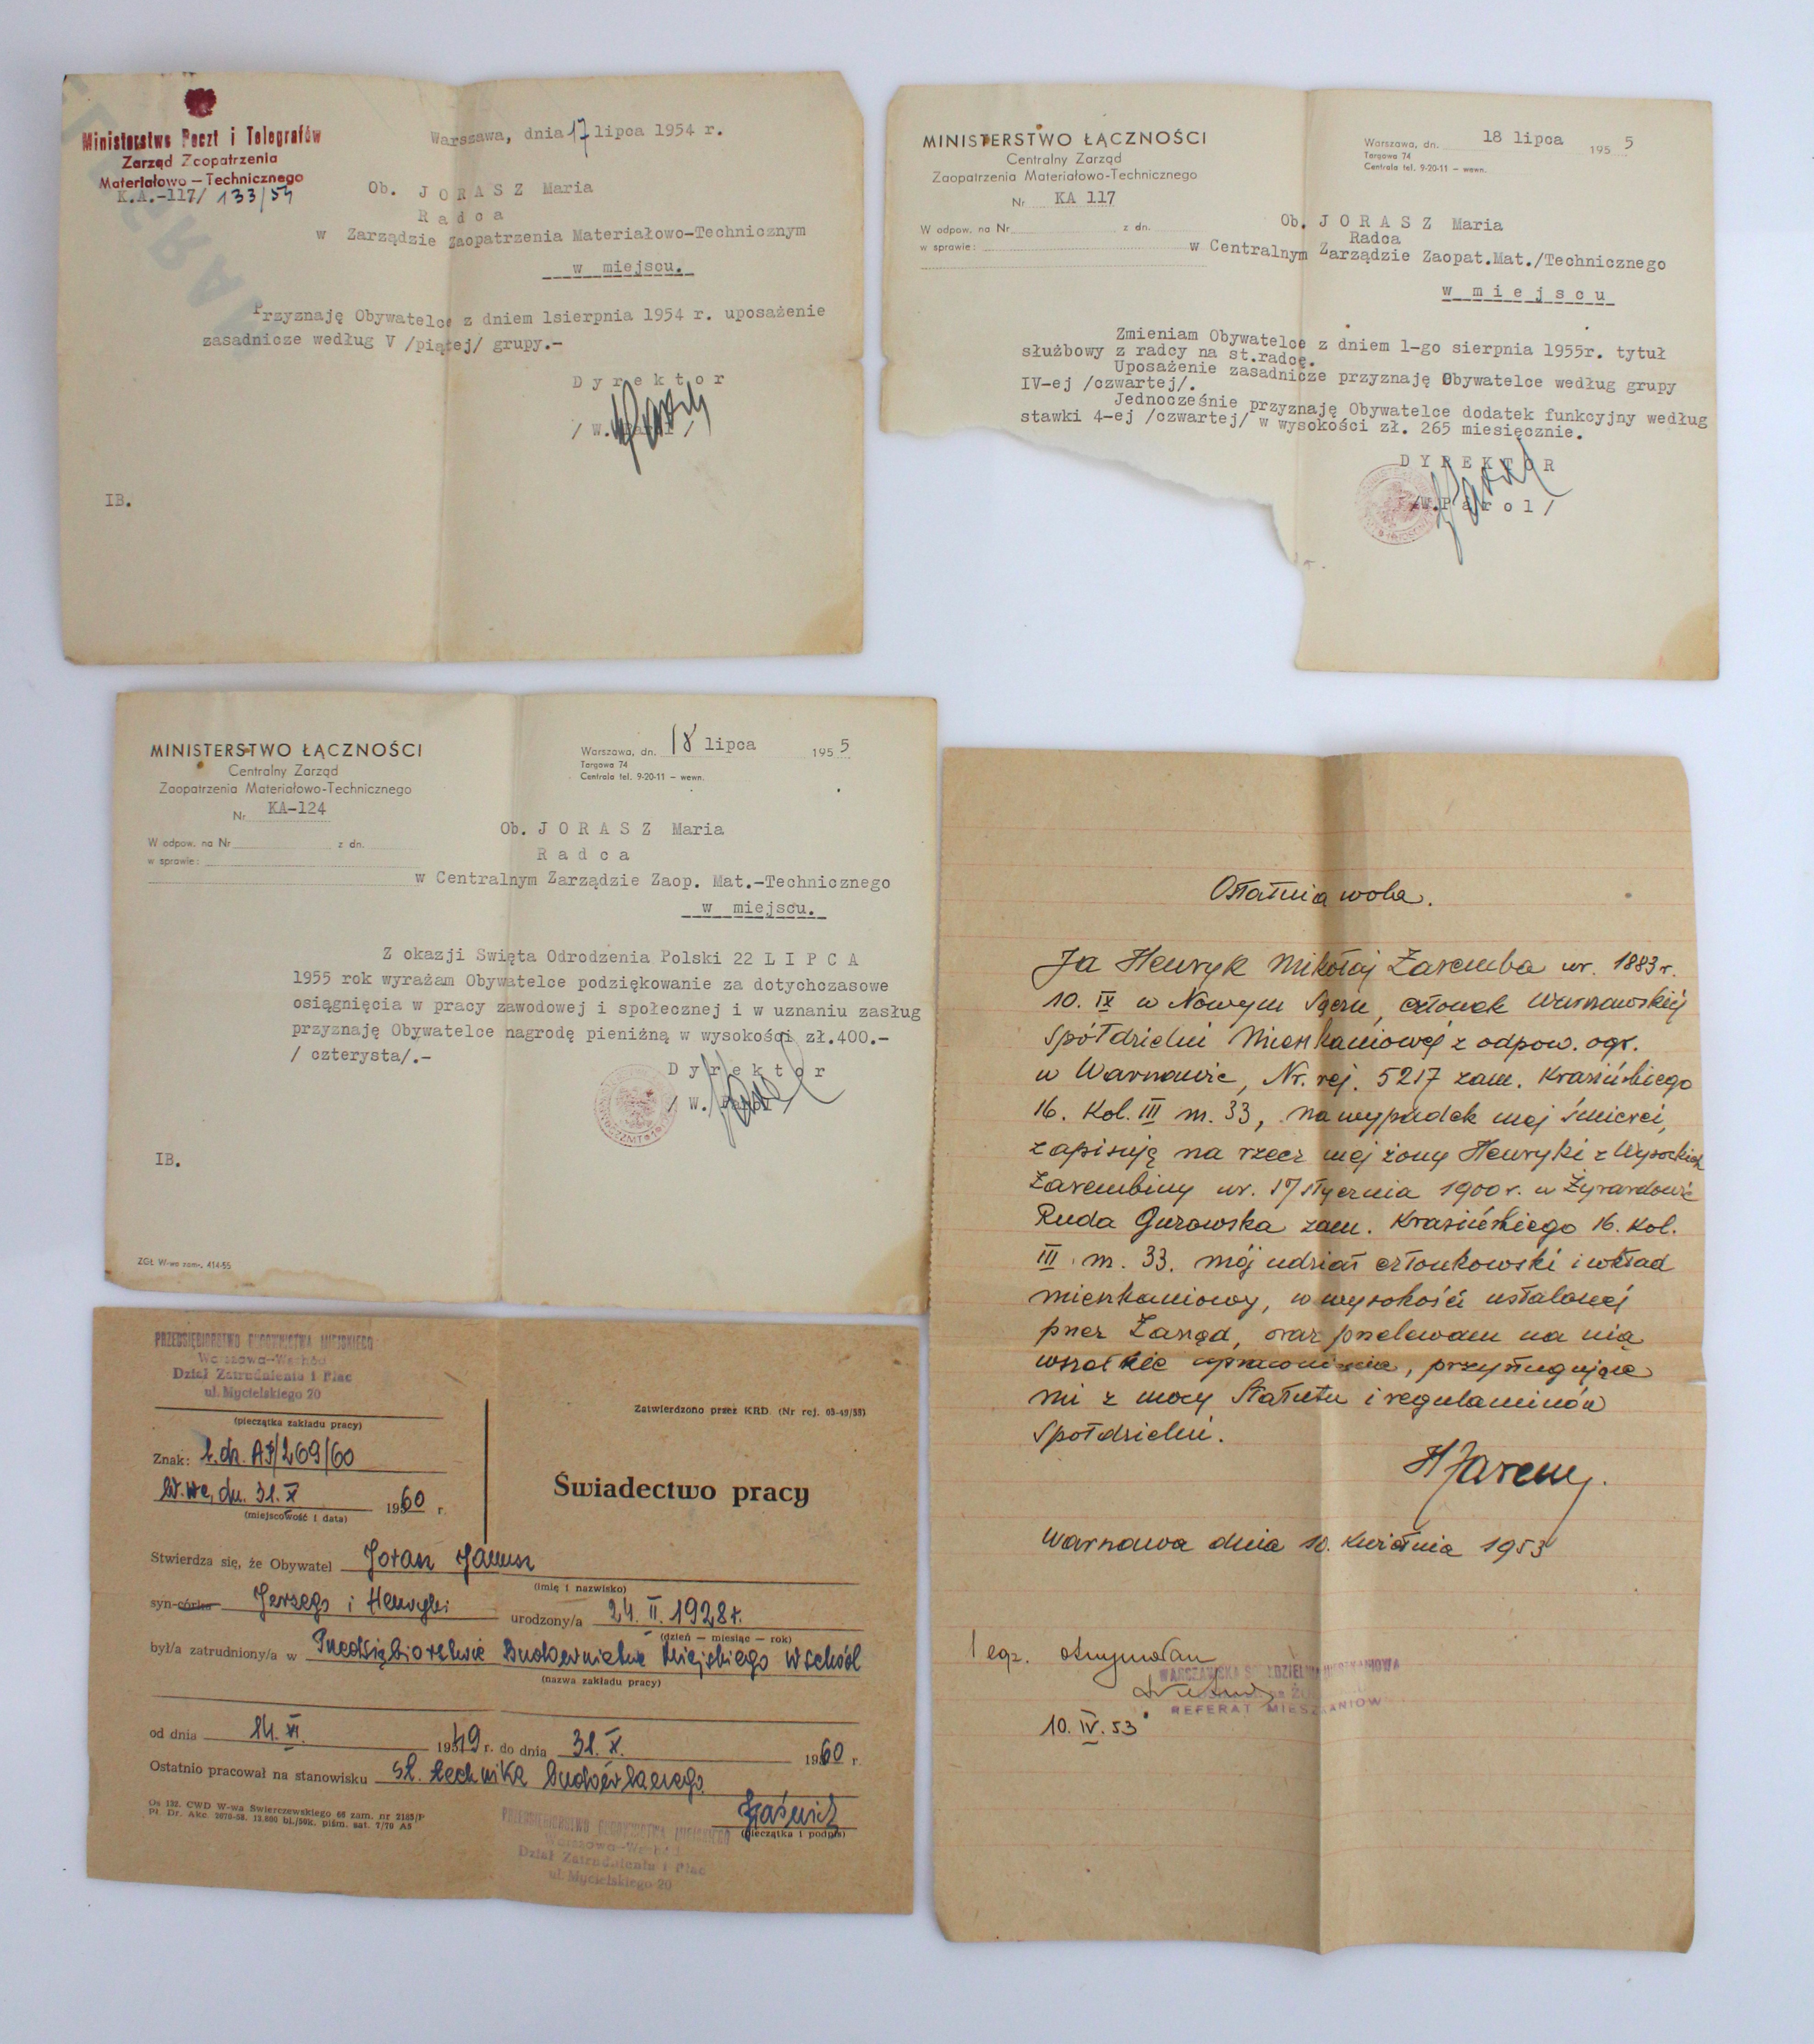 Ministerstwo Poczt i Telegrafów
Zarząd Zaopatrzenia
Materiałowo — Technicznego
K.A.-117/ 133/54
Warszawa, dnia 17 lipca 1954 r.
Ob. J O R A S Z Maria
R a d c a
w Zarządzie Zaopatrzenia Materiałowo-Technicznym
w miejscu.
Przyznaję Obywatelce z dniem 1sierpnia 1954 r. uposażenie
zasadnicze według V /piątej/ grupy.-
D y r e k t o r
/ W.
IB.
MINISTERSTWO ŁĄCZNOŚCI
Centralny Zarząd
Zaopatrzenia Materiałowo-Technicznego
Nr KA 117
W odpow. na Nr z dn.
w sprawie:
Warszawa, dn. 18 lipca 195 5
Targowa 74
Centrala tel. 9-20-11 — wewn.
Ob. J O R A S Z Maria
Radca
w Centralnym Zarządzie Zaopat.Mat./Technicznego
w m i e j s c u
Zmieniam Obywatelce z dniem 1-go sierpnia 1955r. tytuł
służbowy z radcy na st.radcę.
Uposażenie zasadnicze przyznaję Obywatelce według grupy
IV-ej /czwartej/.
Jednocześnie przyznaję Obywatelce dodatek funkcyjny według
stawki 4-ej /czwartej/ w wysokości zł. 265 miesięcznie.
D Y R E K T O R
/W.P a r o l/
MINISTERSTWO ŁĄCZNOŚCI
Centralny Zarząd
Zaopatrzenia Materiałowo-Technicznego
Nr KA-124
W odpow. na Nr z dn.
w sprawie:
Warszawa, dn. 18 lipca 195 5
Targowa 74
Centrala tel. 9-20-11 — wewn.
Ob. J O R A S Z Maria
R a d c a
w Centralnym Zarządzie Zaop. Mat.-Technicznego
w miejscu.
Z okazji Swięta Odrodzenia Polski 22 L I P C A
1955 rok wyrażam Obywatelce podziękowanie za dotychczasowe
osiągnięcia w pracy zawodowej i społecznej i w uznaniu zasług
przyznaję Obywatelce nagrodę pieniżną w wysokości zł.400.-
/ czterysta/.-
D y r e k t o r
/ W. Parol /
IB.
ZGŁ W-wa zam. 414-55
Ostatnia wola.
Ja Henryk Mikołaj Zaremba ur. 1883 r.
10. IX w Nowym Sączu, członek Warszawskiej
Spółdzielni Mieszkaniowej z odpow. ogr.
w Warszawie, Nr. rej. 5217 zam. Krasińskiego
16. Kol. III m. 33, na wypadek mej śmierci,
zapisuję na rzecz mej żony Henryki z Wysockich
Zarembiny ur. 17 stycznia 1900 r. w Żyrardowie
Ruda Guzowska zam. Krasińskiego 16. Kol.
III m. 33. mój udział członkowski i wkład
mieszkaniowy, w wysokości ustalonej
przez Zarząd, oraz przelewam na nią
wszelkie uprawnienia, przysługujące
mi z mocy Statutu i regulaminów
Spółdzielni.
HZaremb.
Warszawa dnia 10. kwietnia 1953
1 egz. otrzymałam
WARSZAWSKA SPÓŁDZIELNIA MIESZKANIOWA
REFERAT MIESZKANIOW
10. IV. 53
PRZEDSIĘBIORSTWO BUDOWNICTWA MIEJSKIEGO
Warszawa-Wschód
Dział Zatrudnienia i Płac
ul. Mycielskiego 20
(pieczątka zakładu pracy)
Zatwierdzono przez KRD. (Nr rej. 03-49/55)
Znak: L.dz. AP/269/60
W-wa, dn. 31. X 1960 r.
(miejscowość i data)
Świadectwo pracy
Stwierdza się, że Obywatel Jorasz Janusz
(imię i nazwisko)
syn-córka Jerzego i Henryki urodzony/a 24. II. 1928 r.
(dzień — miesiąc — rok)
był/a zatrudniony/a w Przedsiębiorstwie Budownictwa Miejskiego Wschód
(nazwa zakładu pracy)
od dnia 14. VI. 1949 r. do dnia 31. X. 1960 r.
Ostatnio pracował na stanowisku st. technika budowlanego
(pieczątka i podpis)
Os 132. CWD W-wa Świerczewskiego 66 zam. nr 2185/P
Pł. Dr. Akc. 2070-58. 12.800 bl./50k. piśm. sat. 7/70 A5
PRZEDSIĘBIORSTWO BUDOWNICTWA MIEJSKIEGO
Warszawa-Wschód
Dział Zatrudnienia i Płac
ul. Mycielskiego 20